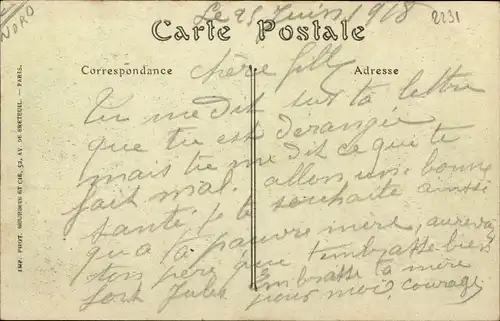 NORD
Le 25 Juin 1918
2231
Carte Postale
Correspondance
Adresse
chère fille
Tu me dit sur ta lettre
que tu est dérangée
mais tu me dit ce qui te
fait mal. allon une bonne
santé je te souhaite ainsi
qu a ta pauvre mère, au revoir
ton père que t'embrasse bien
fort Jules Embrasse ta mère
pour moi, courage
IMP. PHOT. NEURDEIN ET CIE, 52, AV. DE BRETEUIL. — PARIS.